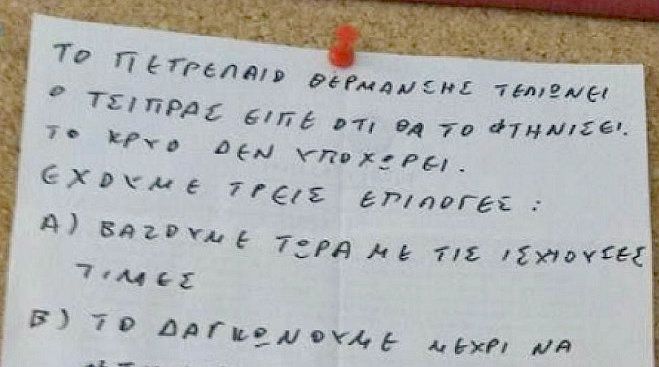 ΤΟ ΠΕΤΡΕΛΑΙΟ ΘΕΡΜΑΝΣΗΣ ΤΕΛΙΩΝΕΙ
Ο ΤΣΙΠΡΑΣ ΕΙΠΕ ΟΤΙ ΘΑ ΤΟ ΦΤΗΝΙΣΕΙ.
ΤΟ ΚΡΥΟ ΔΕΝ ΥΠΟΧΩΡΕΙ.
ΕΧΟΥΜΕ ΤΡΕΙΣ ΕΠΙΛΟΓΕΣ :
Α) ΒΑΖΟΥΜΕ ΤΩΡΑ ΜΕ ΤΙΣ ΙΣΧΙΟΥΣΕΣ
ΤΙΜΕΣ
Β) ΤΟ ΔΑΓΚΩΝΟΥΜΕ ΜΕΧΡΙ ΝΑ